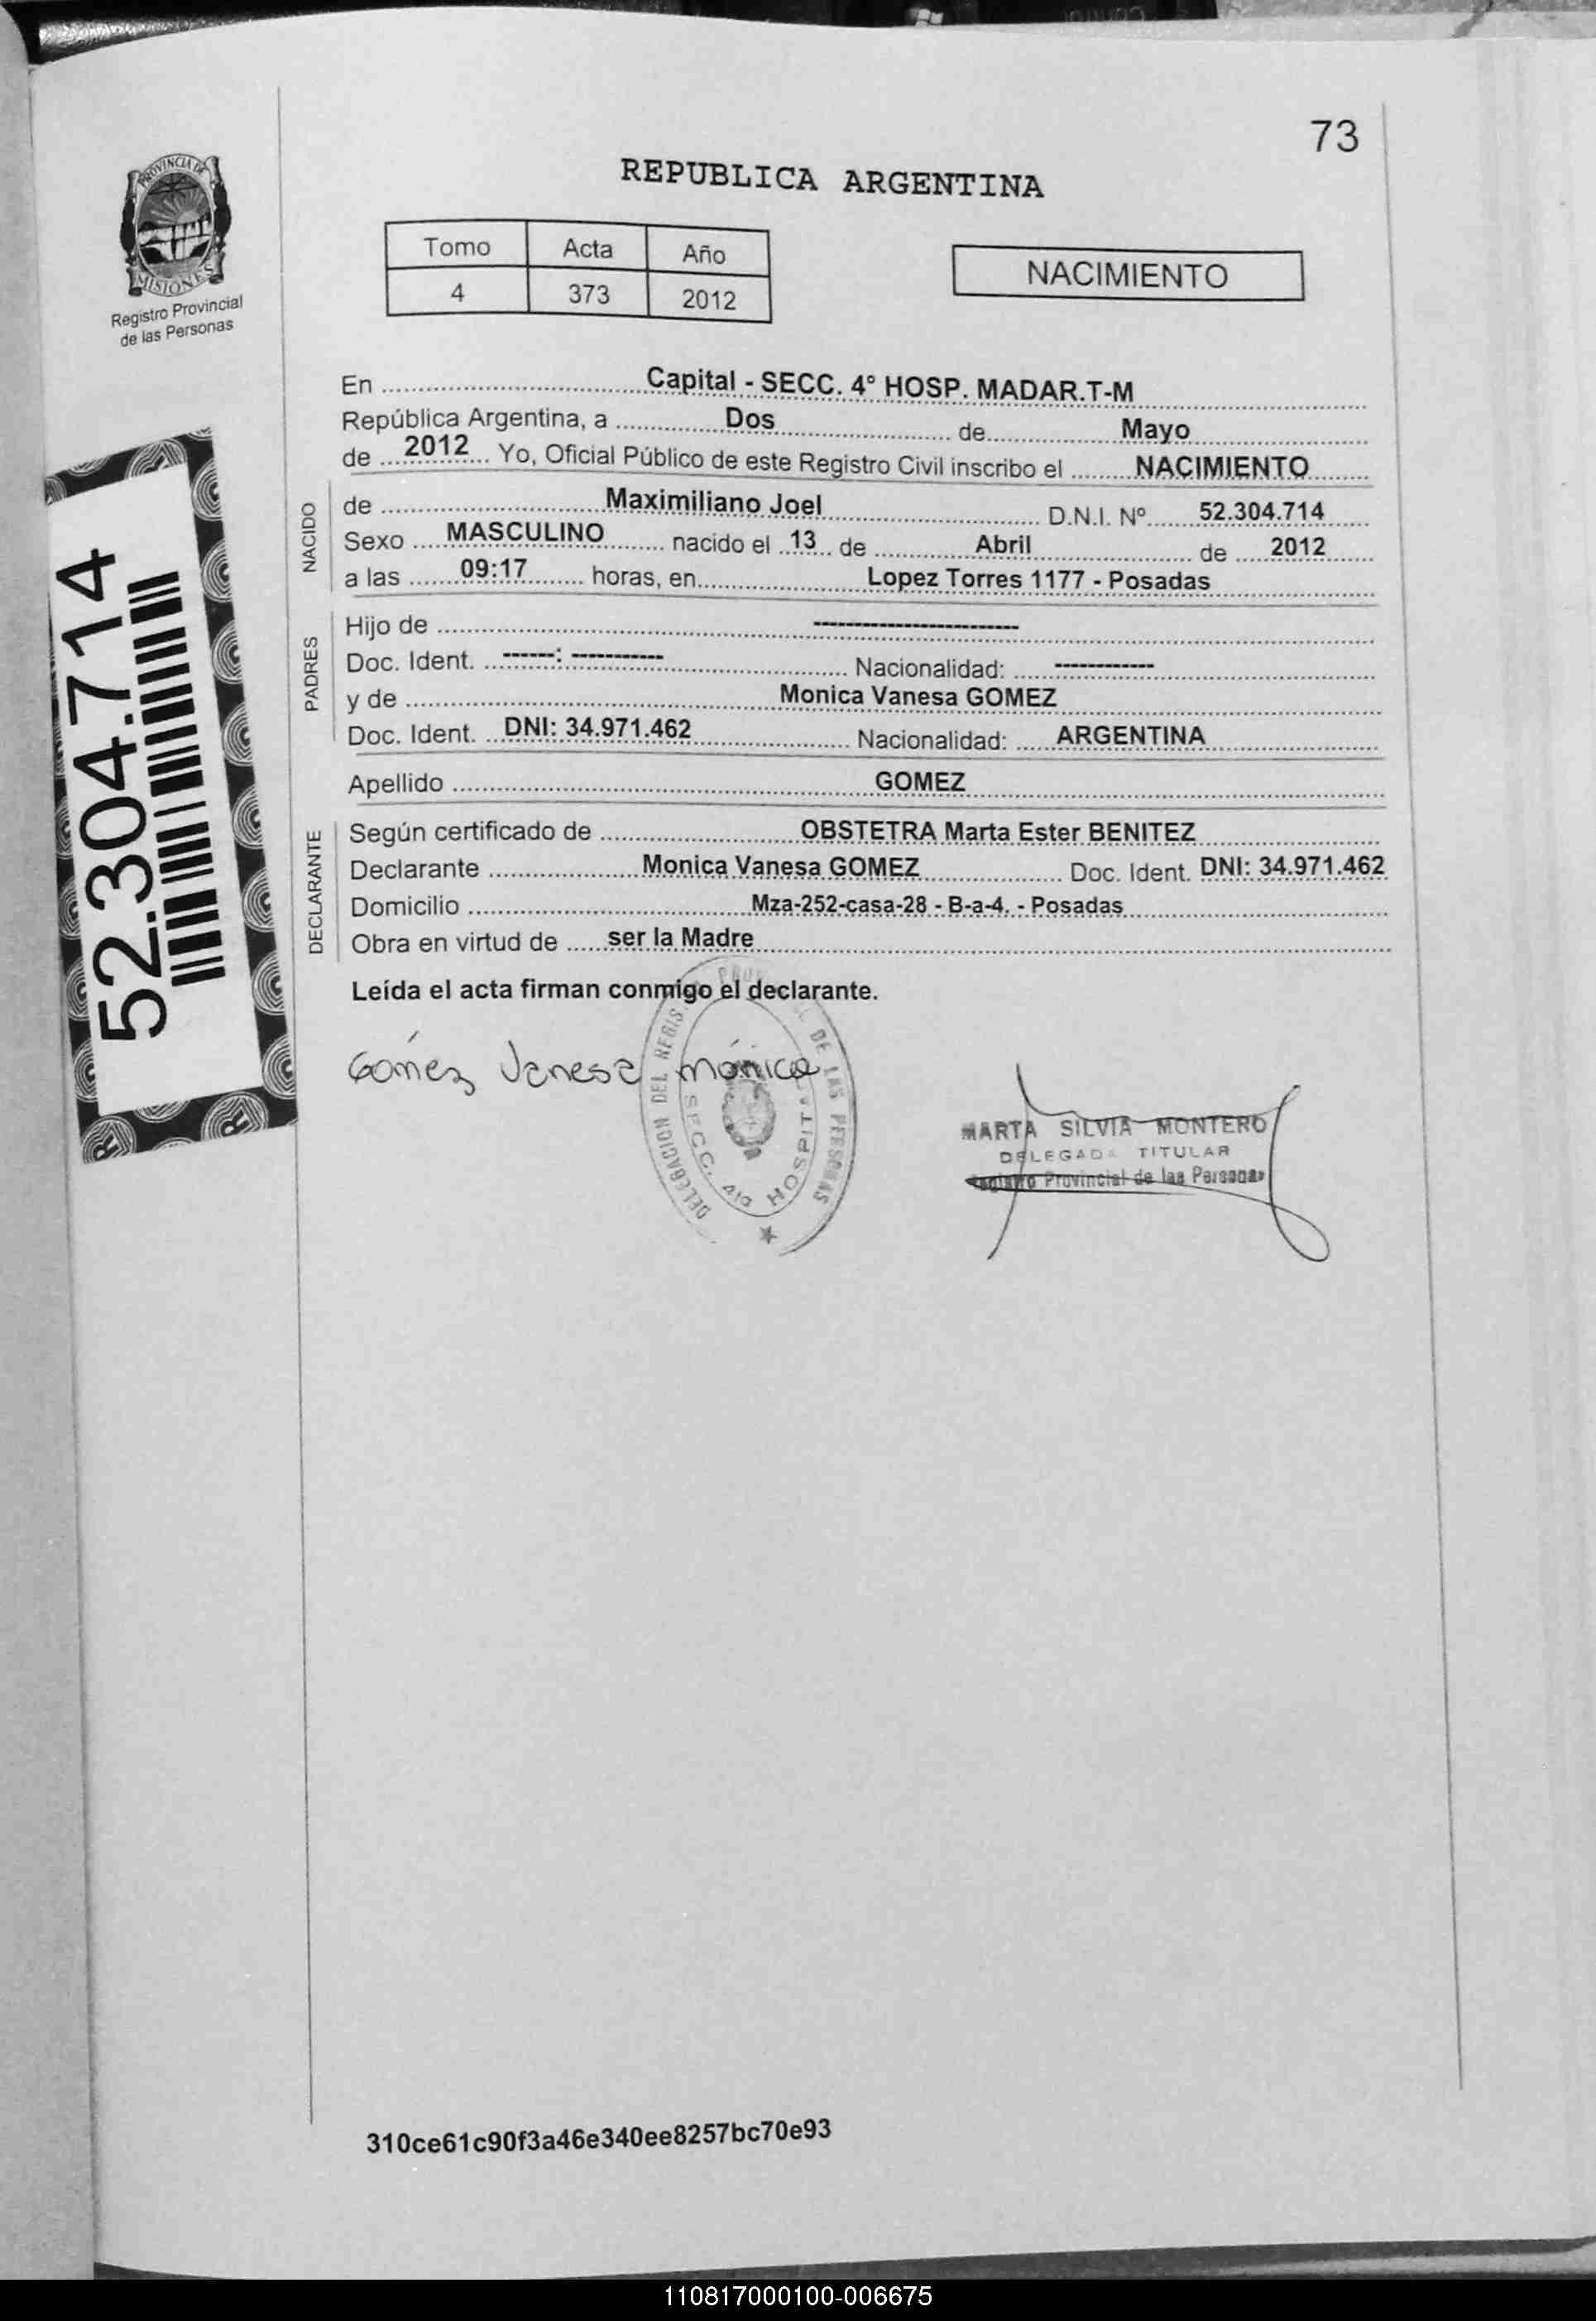 73
PROVINCIA DE
MISIONES
Registro Provincial
de las Personas
REPUBLICA ARGENTINA
Tomo Acta Año
4 373 2012
NACIMIENTO
En ........ Capital - SECC. 4° HOSP. MADAR.T-M
República Argentina, a ........ Dos ........ de ........ Mayo
de .... 2012 .... Yo, Oficial Público de este Registro Civil inscribo el ........ NACIMIENTO
NACIDO
de ........ Maximiliano Joel ........ D.N.I. Nº ........ 52.304.714
Sexo .... MASCULINO ........ nacido el .. 13 .. de ........ Abril ........ de .... 2012
a las ...... 09:17 ...... horas, en ........ Lopez Torres 1177 - Posadas
PADRES
Hijo de ........ -----------------------
Doc. Ident. .. ------: ----------- ........ Nacionalidad: .... ------------
y de ........ Monica Vanesa GOMEZ
Doc. Ident. .. DNI: 34.971.462 ........ Nacionalidad: .... ARGENTINA
Apellido ........ GOMEZ
DECLARANTE
Según certificado de ........ OBSTETRA Marta Ester BENITEZ
Declarante ........ Monica Vanesa GOMEZ ........ Doc. Ident. DNI: 34.971.462
Domicilio ........ Mza-252-casa-28 - B-a-4. - Posadas
Obra en virtud de ...... ser la Madre
Leída el acta firman conmigo el declarante.
Gómez Vanesa mónica
DELEGACION DEL REGIS DE LAS PERSONAS
SECC. 4ta HOSPITAL
MARTA SILVIA MONTERO
DELEGADA TITULAR
Registro Provincial de las Personas
52.304.714
310ce61c90f3a46e340ee8257bc70e93
110817000100-006675